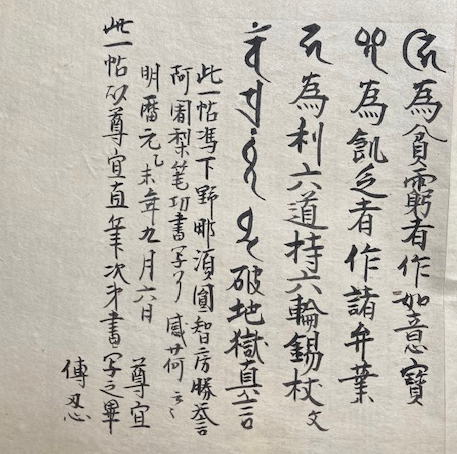 為貧窮者作如意寶
為飢乏者作諸弁葉
為利六道持六輪錫杖文
破地獄真言
此一帖馮下野那須圓智房勝誉
阿闍梨筆功書写了感荷云々
明暦元乙未年九月六日
尊宜
此一帖以尊宜直筆次才書写之畢
傳忍